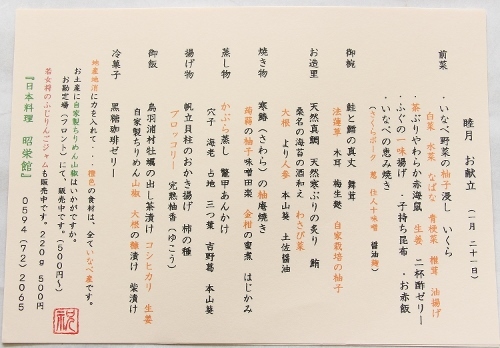 睦月 お献立 (一月 二十一日)
前菜 ・いなべ野菜の柚子浸し いくら
白菜 水菜 なばな 青梗菜 椎茸 油揚げ
・茶ぶりやわらか赤海鼠 生姜 二杯酢ゼリー
・ふぐの一味揚げ ・子持ち昆布 ・お赤飯
・いなべの恵み焼き
(さくらポーク 葱 仕人十味噌 醤油麹)
御椀 鮭と鱈の真丈 舞茸
法蓮草 木耳 梅生麩 自家栽培の柚子
お造里 天然真鯛 天然寒ぶりの炙り 鮪
桑名の海苔の酒和え わさび菜
大根 より人参 本山葵 土佐醤油
焼き物 寒鰆(さわら)の柚庵焼き
蒟蒻の柚子味噌田楽 金柑の蜜煮 はじかみ
蒸し物 かぶら蒸し 鼈甲あんかけ
穴子 海老 占地 三つ葉 吉野葛 本山葵
揚げ物 帆立貝柱のおかき揚げ 柿の種
ブロッコリー 完熟柚香(ゆこう)
御飯 鳥羽浦村牡蠣の出し茶漬け コシヒカリ 生姜
自家製ちりめん山椒 大根の麹漬け 柴漬け
冷菓子 黒糖珈琲ゼリー
地産地消に力を入れて・・・橙色の食材は、全ていなべ産です。
お土産に自家製ちりめん山椒はいかがですか。
お勘定場(フロント)にて、販売中です。(500円~)
若女将のふじりんごジャムも販売中です。220g 500円
『日本料理 昭栄館』 0594(72)2065
祝